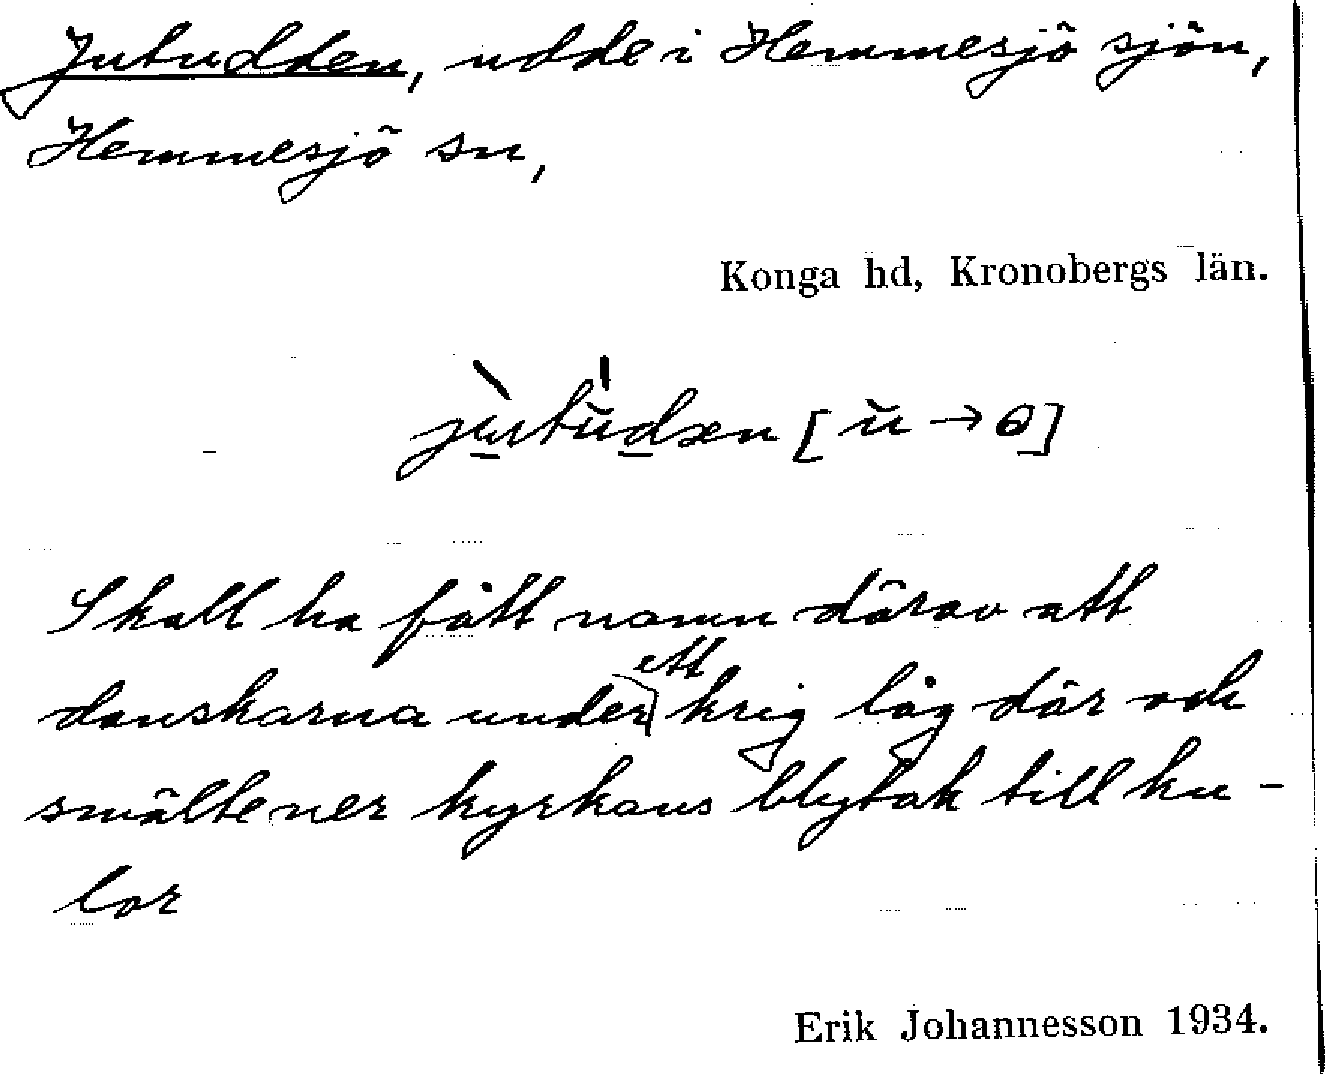 Jutudden, udde i Hemmesjö sjön,
Hemmesjö sn,
Konga hd, Kronobergs län.
[ŭ → ɵ]
Skall ha fått namn därav att
danskarna under ett krig låg där och
smälte ner kyrkans blytak till ku-
lor
Erik Johannesson 1934.